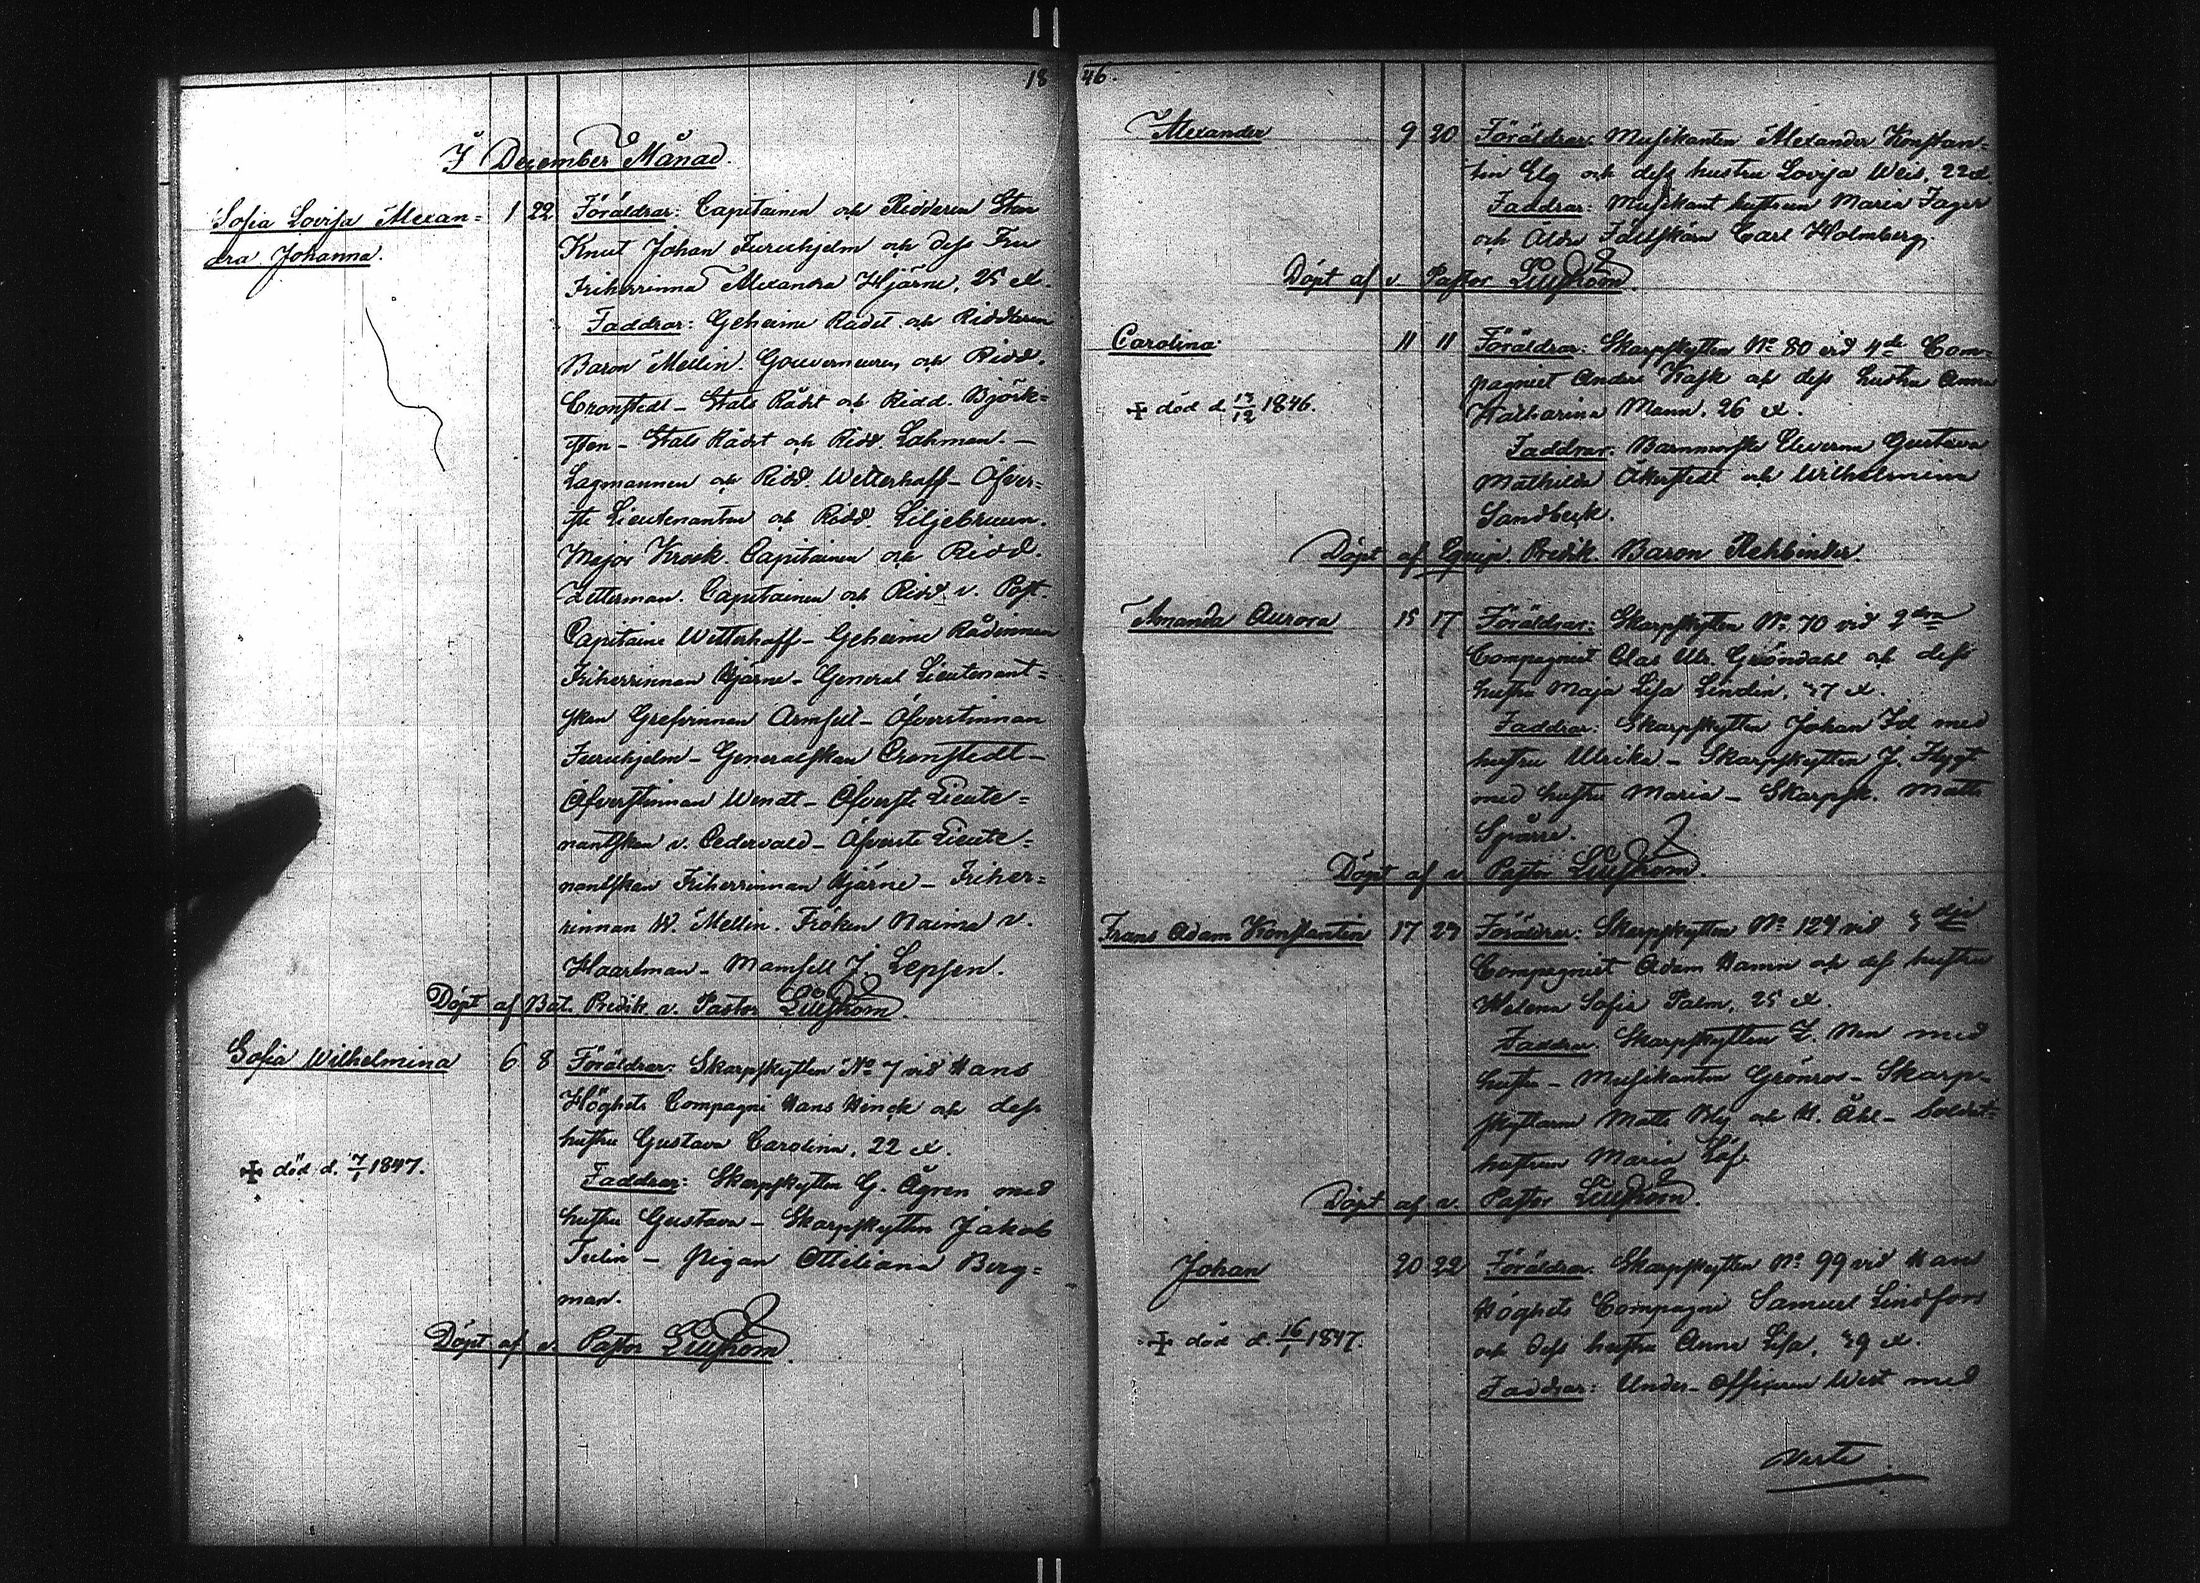 18
I December Månad.
Sofia Lovisa Alexan=
dra Johanna.
1 22
Föräldrar: Capitainen och Ridderen Sten
Knut Johan Furuhjelm och dess Fru
Friherrinna Alexandra Hjärne, 25 at.
Faddrar: Geheime Rådet och Riddaren
Baron Mellin. Gouverneuren och Ridd.
Cronstedt – Stats Rådet och Ridd. Björk=
sten – Stats Rådet och Ridd. Lahman. –
Lagmannen och Ridd. Wetterhoff – Öfver=
ste Lieutenanten och Ridd. Liljebruun.
Major Krook. Capitainen och Ridd.
Zitterman. Capitainen och Ridd. v. Post.
Capitaine Wetterhoff – Geheime Rådinnan
Friherrinnan Hjärne – General Lieutenant=
skan Grefvinnan Armfelt – Öfverstinnan
Furuhjelm – Generalskan Cronstedt –
Öfverstinnan Wendt – Öfverste Lieute=
nantskan v. Cedervald – Öfverste Lieute=
nantskan Friherrinnan Hjärne – Friher=
rinnan W. Mellin. Fröken Naima v.
Haartman – Mamsell J. Lepsen.
Döpt af Bat. Predik. v. Pastor Lilljstrom.
Sofia Wilhelmina
6 8
+ död d. 7/1 1847.
Föräldrar: Skarpskytten No 7 vid Hans
Höghets Compagni Hans Hinck och dess
hustru Gustava Carolina, 22 at.
Faddrar: Skarpskytten G. Ågren med
hustru Gustava – Skarpskytten Jakob
– Pigan Ottiliana Berg=
man.
Döpt af v. Pastor Lilljstrom.
46.
Alexander
9 20
Föräldrar: Musikanten Alexander Konstan=
tin Elg och dess hustru Lovisa Weis, 22 at.
Faddrar: Musikant hustrun Maria Jager
och Äldre Fältskärn Carl Holmberg.
Döpt af v. Pastor Lilljstrom.
Carolina.
11 11
+ död d. 13/12 1846.
Föräldrar: Skarpskytten No 80 vid 4de Com=
pagniet Anders Kask och dess hustru Anna
Katharina Mann, 26 at.
Faddrar: Barnmorske Eleverna Gustava
Mathilda Åkerstedt och Wilhelmina
Sandbeck.
Döpt af Predik. Baron Rehbinder.
Amanda Aurora
15 17
Föräldrar: Skarpskytten No 70 vid 2dra
Compagniet Clas Ulr. Gröndahl och dess
hustru Maja Lisa Lindin, 37 at.
Faddrar: Skarpskytten Johan Id. med
hustru Ulrika – Skarpskytten J. Flygt
med hustru Maria – Skarpsk. Matts
Sparre.
Döpt af v. Pastor Lilljstrom.
Frans Adam Konstantin
17 27
Föräldrar: Skarpskytten No 124 vid 3dje
Compagniet Adam Hamn och dess hustru
Helena Sofia Palm, 25 at.
Faddrar: Skarpskytten Z. Men med
hustru – Musikanten Grönros – Skarp=
skyttarne Matts Bly och H. Åhl – Soldat=
hustrun Maria Löf.
Döpt af v. Pastor Lilljstrom.
Johan
20 22
+ död d. 16/1 1847.
Föräldrar: Skarpskytten No 99 vid Hans
Höghets Compagni Samuel Lindfors
och dess hustru Anna Lisa, 39 at.
Faddrar: Under-officeren West med
Verte